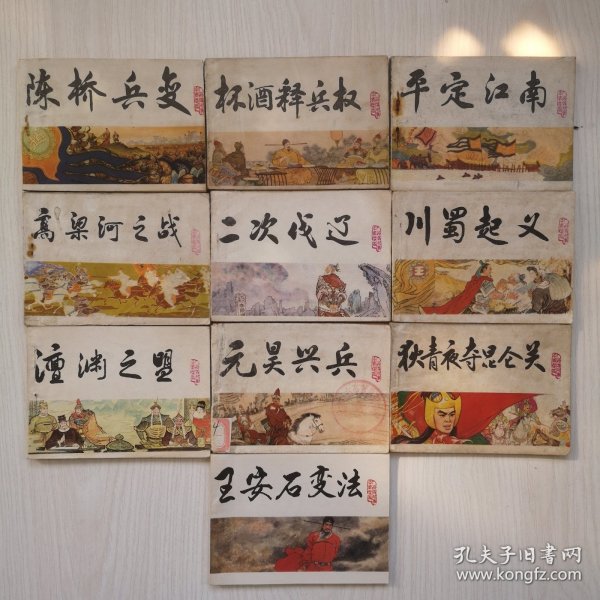 陈桥兵变
杯酒释兵权
平定江南
高梁河之战
二次伐辽
川蜀起义
澶渊之盟
元昊兴兵
狄青夜夺昆仑关
王安石变法
孔夫子旧书网
www.kongfz.com